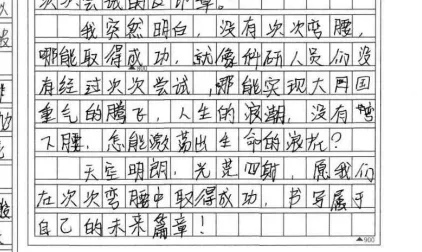 我突然明白，没有次次弯腰，
哪能取得成功，就像科研人员们没
▲800
有经过次次尝试，哪能实现大国国
重气的腾飞，人生的浪潮，没有弯
下腰，怎能激荡出生命的浪花？
天空明朗，光芒四射，愿我们
在次次弯腰中取得成功，书写属于
自己的未来篇章！
▲900